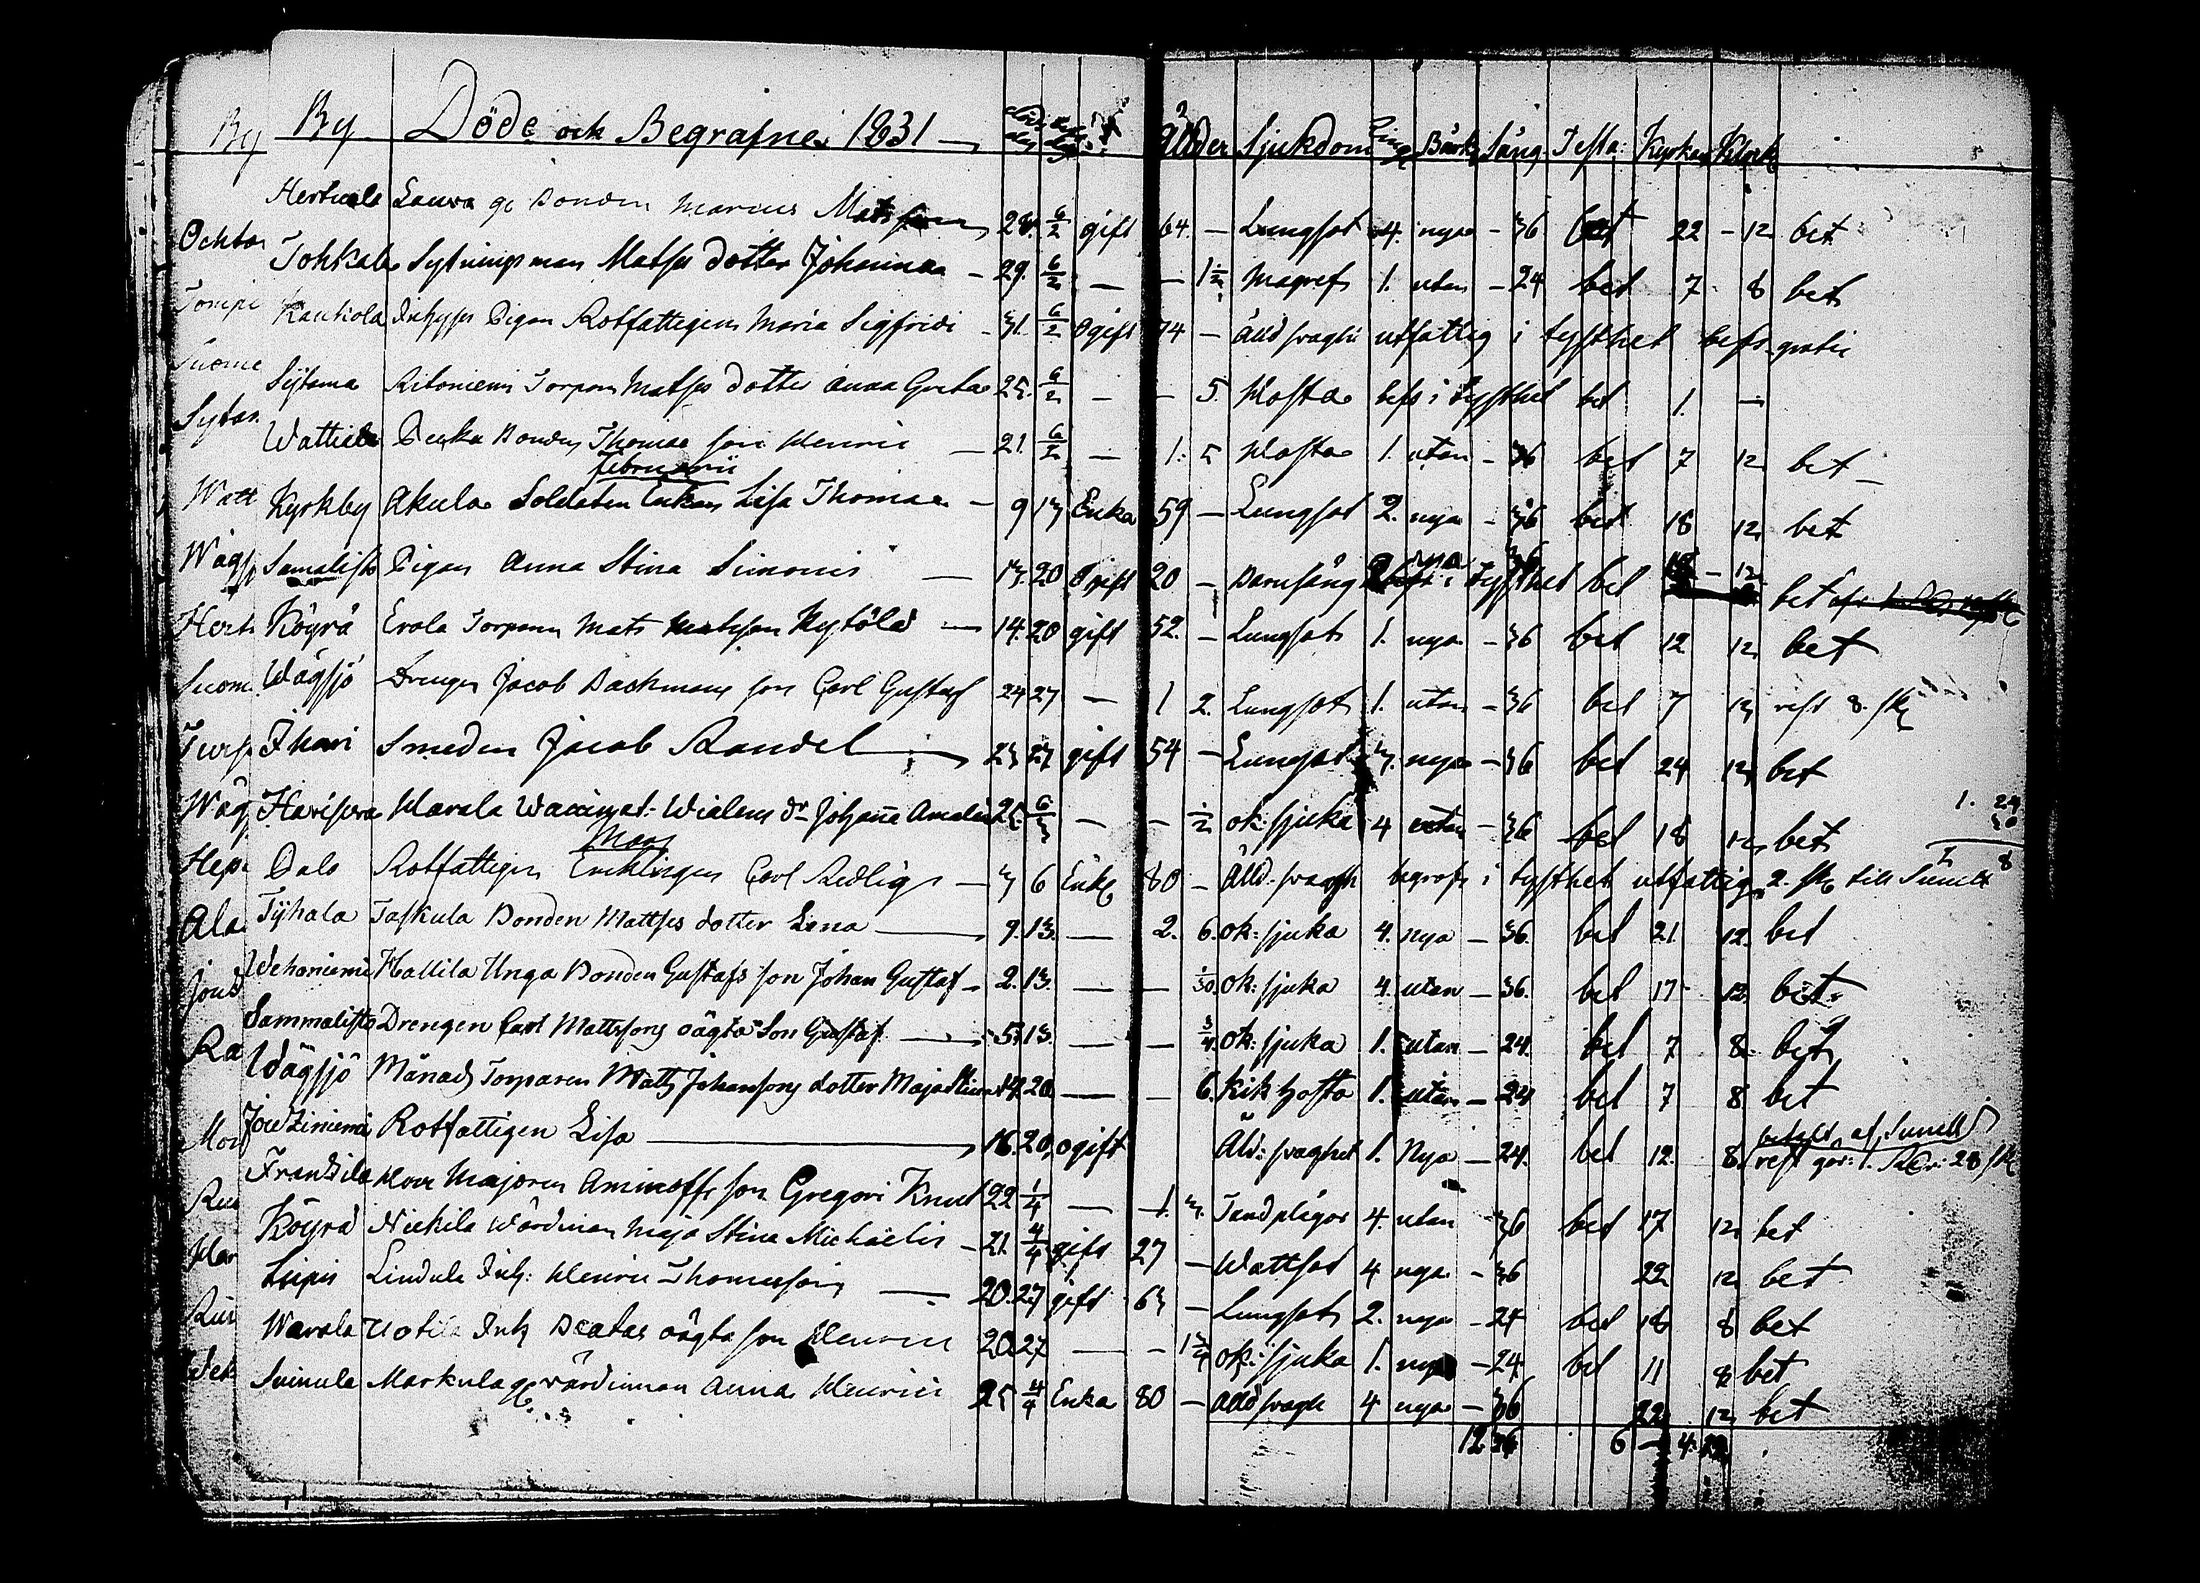 By By Döde och Begrafne 1831 Ålder Sjukdom Ring Bårk Säng Testa: Kyrkan Klock
Hertuala Laura gl Bonden Marcus Matsson 28. 6/2 gift 64. — Lungsot 4. nya - 36 bet 22 - 12 bet
Ochto
Tohkala Sytningsman Matss dotter Johanna — 29. 6/2 — — 1 1/2 Magref 1. utan - 24 bet 7 8 bet
Tompi
Kauhola Inhyses Pigan Rotfattigen Maria Sigfridi - 31. 6/2 Ogift 74 — Ålld svaght utfattig i tysthet befr. gratis
Suome
Sytama Ritoniemi Torparn Matss dotter Anna Greta 25. 6/2 — — 5. Hosta befr i tysthet bet 1. —
Sytam
Wattiala Penka Bondens Thomas son Henric — 21. 6/2 — 1. 5 Hosta 1. utan - 36 bet 7 12 bet
Februarii
Watt Kyrkby Akulas Soldaten Enkan Lisa Thomae — 9 13 Enka 59 — Lungsot 2. nya - 36 bet 18 12 bet
Wägsj Samalisto Pigan Anna Stina Simonis — 13. 20 Ogift 20 — Barnsäng nya i tysthet 36 bet 18 - 12 bet
Hert Köyrä Erola Torparn Mats Matsson Kytölä — 14. 20 gift 52. — Lungsot 1. nya - 36 bet 12 12 bet
Suom Wägsjö Drengen Jacob Backmans son Carl Gustaf 24 27 — 1 2. Lungsot 1. utan - 36 bet 7 12 rest 8. sk
Turp Ihari Smeden Jacob Randel — 23 27 gift 54 — Lungsot 3. nya - 36 bet 24 12 bet
Wäg Harisova Marala Wacimat: Wialens dr Johanna Amalia 25. 6/3 — — 1/2 ok: sjuka 4 utan - 36 bet 18 12 bet 1. 24
Mars
Hepo Dals Rotfattigen Enklingen Carl Redlig — 3 6 Enkl 80 — Ålld: svagh begrafs i tysthet utfattig, 2. sk till Sunell 8
Ala Tyhala Taskula Bonden Mattses dotter Lena — 9. 13. — 2. 6. ok: sjuka 4. nya - 36. bet 21. 12. bet
Jout Wehoniemi Hallila Unga Bonden Gustafs son Johan Gustaf - 2. 13. — — 1/30. ok: sjuka 4. utan - 36. bet 17 12 bet
Ra Sammalisto Drengen Carl Mattssons oägta Son Gustaf — 5. 13. — — 3/4. ok: sjuka 1. utan - 24. bet 7 8. bet
Wägsjö Månads Torparen Matts Johanssons dotter Maja Stina 14. 20. — — 6. Kik hosta 1. utan - 24 bet 7 8 bet
Moi Joutziniemi Rotfattigen Lisa — 16. 20. ogift Åld: svaghet 1. Nya - 24. bet 12. 8. rest gör: 1. Rdr: 28 sk
betalt af Sunell
Franzila Herr Majoren Aminoffs son Gregori Knut 22 1/4 — 1. 3. Tandplågor 4. utan 36 bet 17 12 bet
Köyrä Nickila Wärdinnan Maja Stina Michaëlis - 21. 4/4 gift 27 — Wattsot 4 nya - 36 22 12 bet
Liipis Lindula Inh: Henric Thomasson — 20. 27 gift 63 — Lungsot 2. nya - 24 bet 18 8 bet
Warala Uotila Inh Beatas oägta son Henric 20. 27 — — 1 3/4 ok: sjuka 1. nya - 24 bet 11 8 bet
Weh Suinula Markula gl värdinnan Anna Henrici 25 4/4 Enka 80 — Ålld svagh 4 nya - 36 22 12 bet
12 36 6 — 4